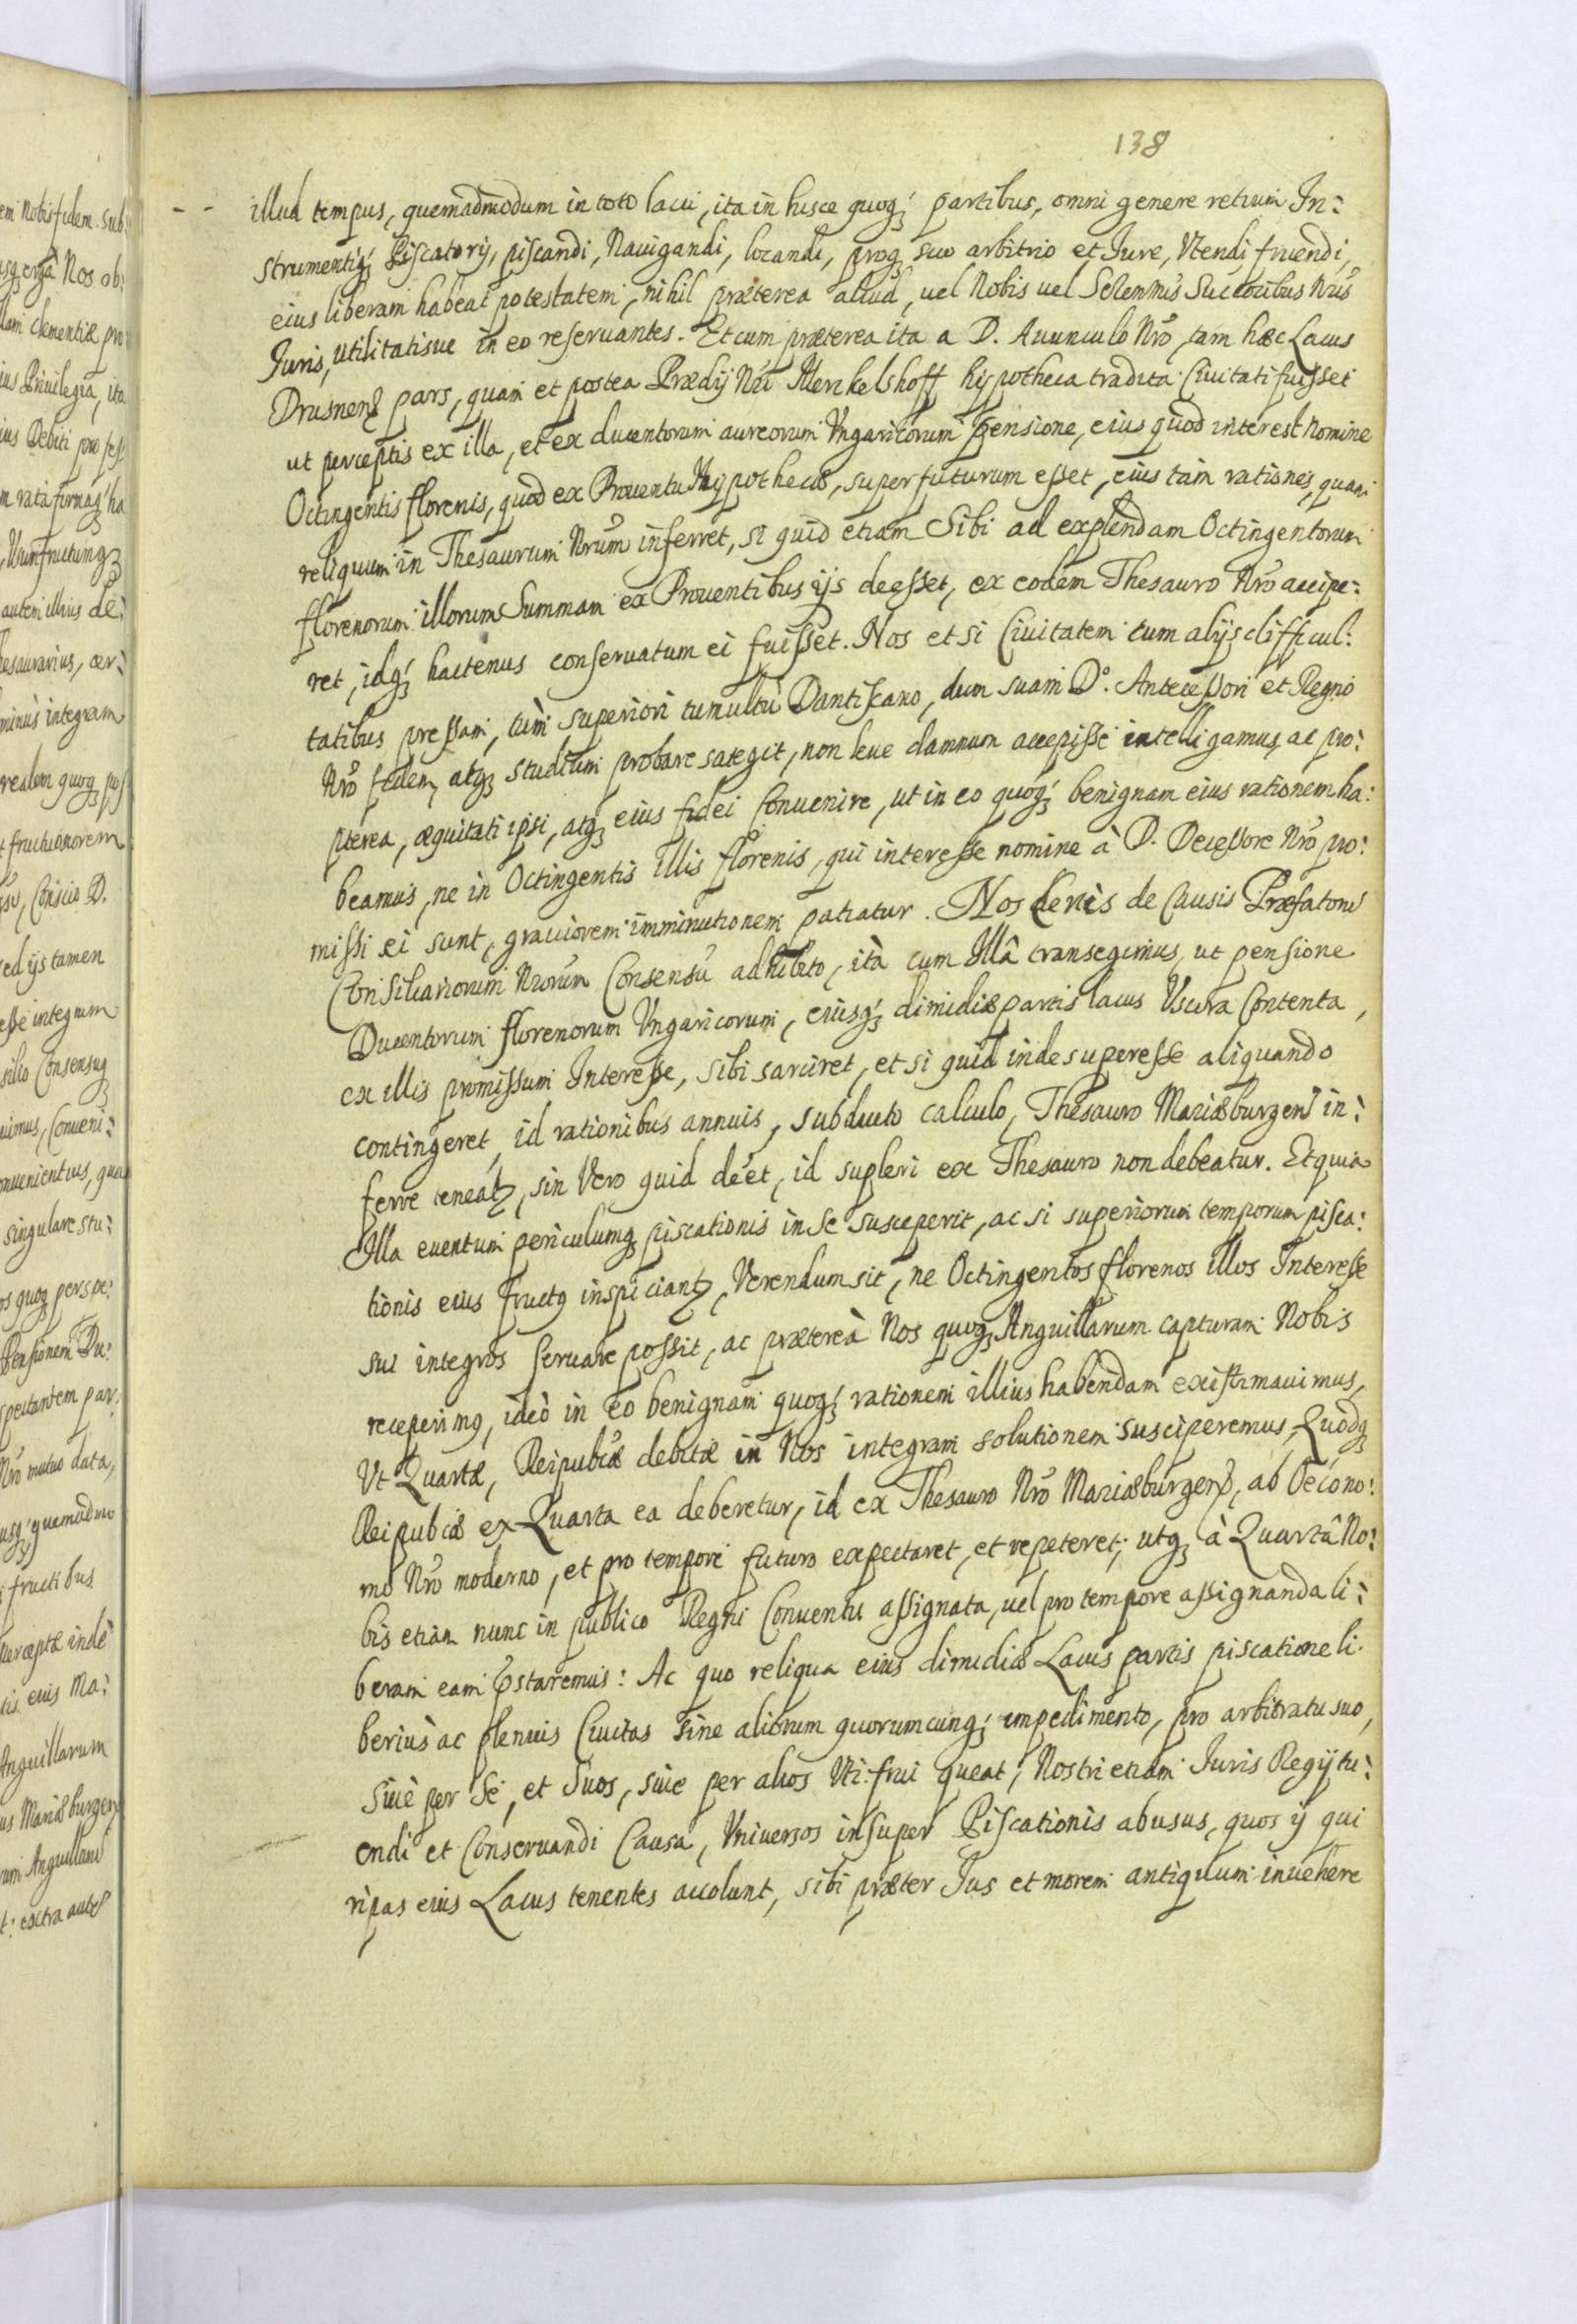 138
illud tempus, quemadmodum in toto lacu, ita in hisce quoqꝫ partibus, omni genere retium In:
strumentiqꝫ Piscatorij, piscandi, Nauigandi, locandi, proqꝫ suo arbitrio et Jure, Vtendi fruendi,
eius liberam habeat potestatem, nihil præterea aliud, uel Nobis uel Selennis Succoribus Nris
Juris, Utilitatisue in eo reseruantes. Et cum præterea ita a D. Auunculo Nro, tam hæc Lacus
Drusnens pars, quam et postea Prædij Nri Menkelshoff hypotheca tradita Ciuitati fuisset
ut perceptis ex illa, et ex ducentorum aureorum Vngaricorum pensione, eius quod interest nomine
Octingentis florenis, quod ex Prouentu Hypothecæ, superfuturum esset, eius tam rationes, quam
reliquum in Thesaurum Nrum inferret, si quid etiam Sibi ad explendam Octingentorum
florenorum illorum Summam ex Prouentibus ijs deesset, ex eodem Thesauro Nro accipe:
ret, idqꝫ hactenus conseruatum ei fuisset. Nos et si Ciuitatem cum alijs difficul:
tatibus pressam, tùm superiori tumultu Dantiscano, dum suam Dº. Antecessori et Regno
Nro fidem, atqꝫ studium probare sategit, non leue damnum accepisse intelligamus, ac pro:
pterea, æquitati ipsi, atqꝫ eius fidei Conuenire, ut in eo quoqꝫ benignam eius rationem ha:
beamus, ne in Octingentis illis florenis, qui interesse nomine à D. Decessore Nro pro:
missi ei sunt, grauiorem imminutionem patiatur. Nos de Causis Præfatorum
Consiliariorum Nrorum Consensu adhibito, ità cum Illâ transegimus, ut pensione
Ducentorum florenorum Vngaricorum, eiusqꝫ dimidiæ partis lacus Vsura Contenta,
ex illis promissum Interesse, sibi sarciret, et si quid inde superesse aliquando
contingeret, id rationibus annuis, subducto calculo, Thesauro Mariæburgens in:
ferre teneatꝫ, sin Vero quid deêt, id supleri ex Thesauro non debeatur. Et quia
Illa euentum periculumqꝫ piscationis in se susceperit, ac si superiorum temporum pisca:
tionis eius fructꝯ inspiciantꝫ, Verendum sit, ne Octingentos florenos illos Interesse
sui integros seruare possit, ac prætereà Nos quoqꝫ Anguillarum capturam Nobis
receperimꝯ, ideò in eo benignam quoqꝫ rationem illius habendam existimauimus,
Vt Quartæ, Reipubcæ debitæ in Nos integram solutionem susciperemus, Quodqꝫ
Reipubcæ ex Quarta ea deberetur, id ex Thesauro Nro Mariæburgens, ab Oecono:
mo Nro moderno, et pro tempore futuro expectaret, et repeteret; utqꝫ à Quartâ No:
bis etiam nunc in publico Regni Conuentu assignata, uel pro tempore assignanda li:
beram eam pstaremus: Ac quo reliqua eius dimidiæ Lacus partis piscatione li:
beriùs ac plenius Ciuitas sine aliorum quorumcunqꝫ impedimento, pro arbitratu suo,
Siuè per Se, et Suos, siue per alios Vti frui queat, Nostri etiam Juris Regij tu:
endi et Conseruandi Causa, Vniuersos insuper Piscationis abusus, quos ij qui
ripas eius Lacus tenentes accolunt, sibi præter Jus et morem antiquum inuehere